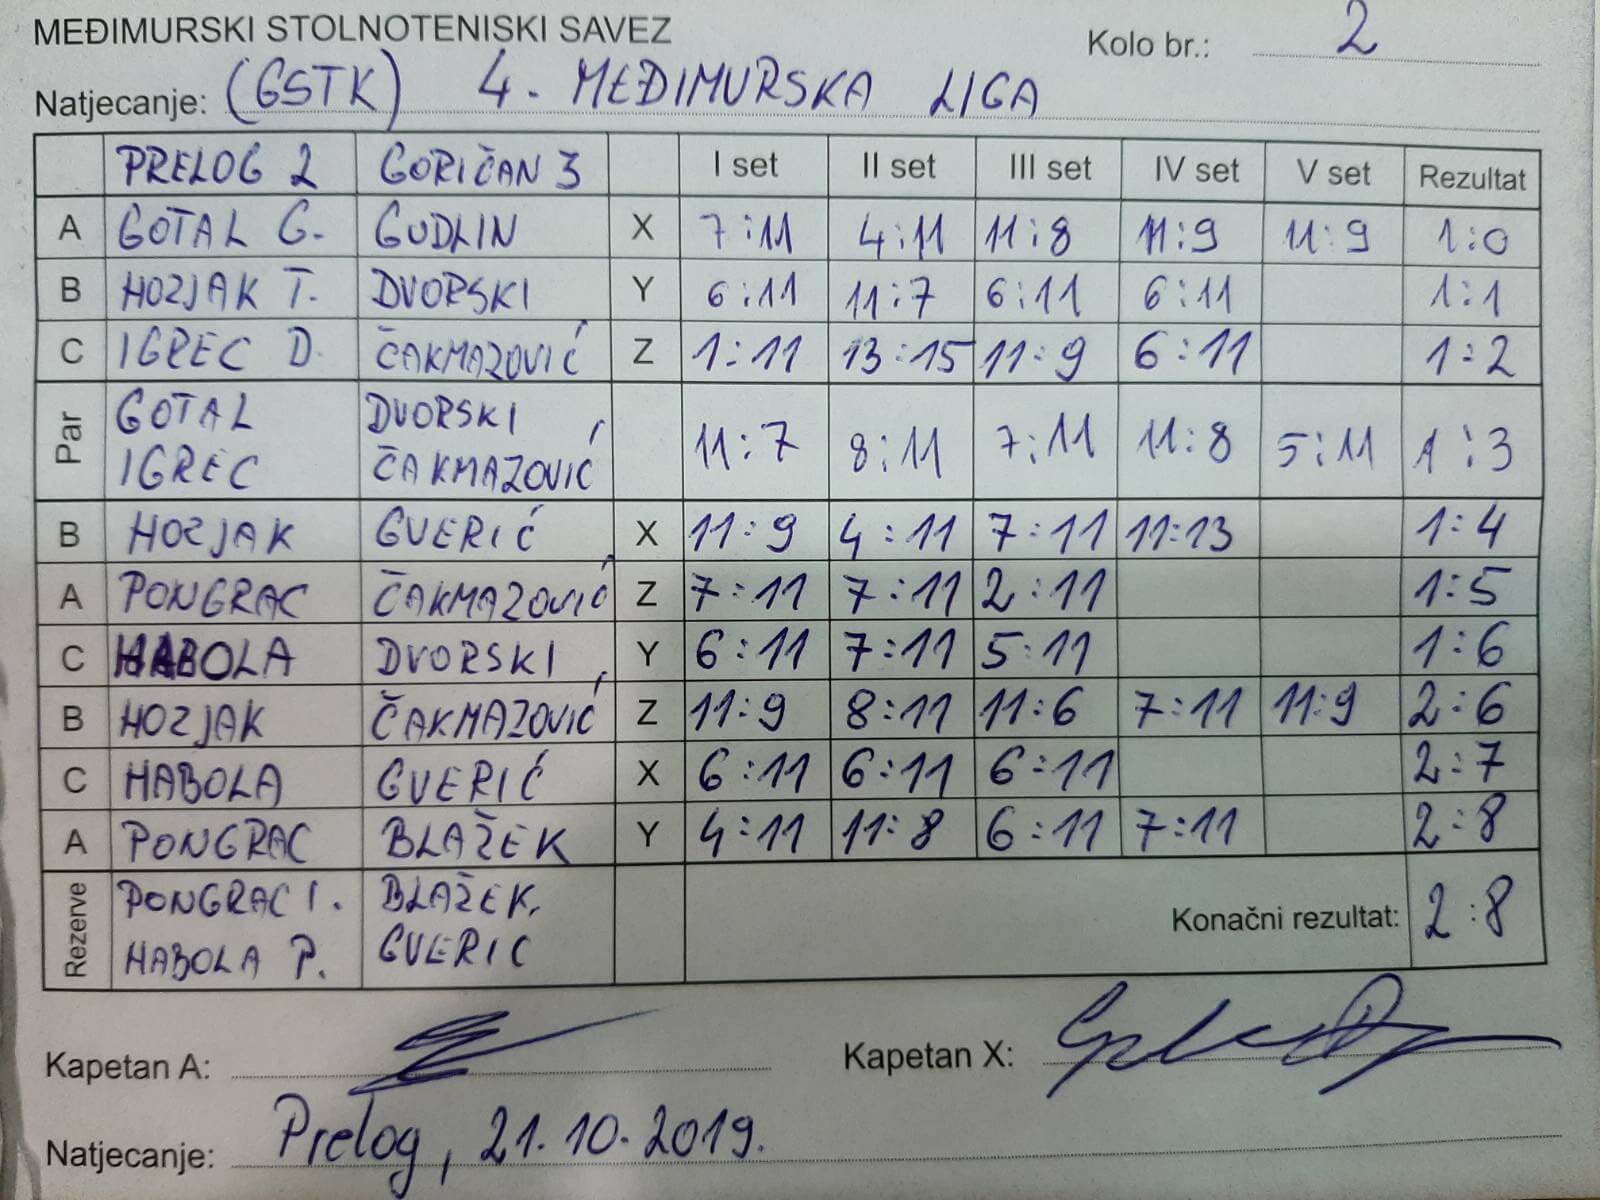 MEĐIMURSKI STOLNOTENISKI SAVEZ
Kolo br.: 2
Natjecanje: (GSTK) 4. MEĐIMURSKA LIGA
PRELOG 2 GORIČAN 3 I set II set III set IV set V set Rezultat
A GOTAL G. GUDLIN X 7:11 4:11 11:8 11:9 11:9 1:0
B HOZJAK T. DVORSKI Y 6:11 11:7 6:11 6:11 1:1
C IGREC D. ČAKMAZOVIĆ Z 1:11 13:15 11:9 6:11 1:2
Par GOTAL IGREC DVORSKI ČAKMAZOVIĆ 11:7 8:11 7:11 11:8 5:11 1:3
B HOZJAK GVERIĆ X 11:9 4:11 7:11 11:13 1:4
A PONGRAC ČAKMAZOVIĆ Z 7:11 7:11 2:11 1:5
C HABOLA DVORSKI Y 6:11 7:11 5:11 1:6
B HOZJAK ČAKMAZOVIĆ Z 11:9 8:11 11:6 7:11 11:9 2:6
C HABOLA GVERIĆ X 6:11 6:11 6:11 2:7
A PONGRAC BLAŽEK Y 4:11 11:8 6:11 7:11 2:8
Rezerve PONGRAC I. BLAŽEK.
HABOLA P. GVERIC
Konačni rezultat: 2:8
Kapetan A:
Kapetan X:
Natjecanje: Prelog, 21.10.2019.